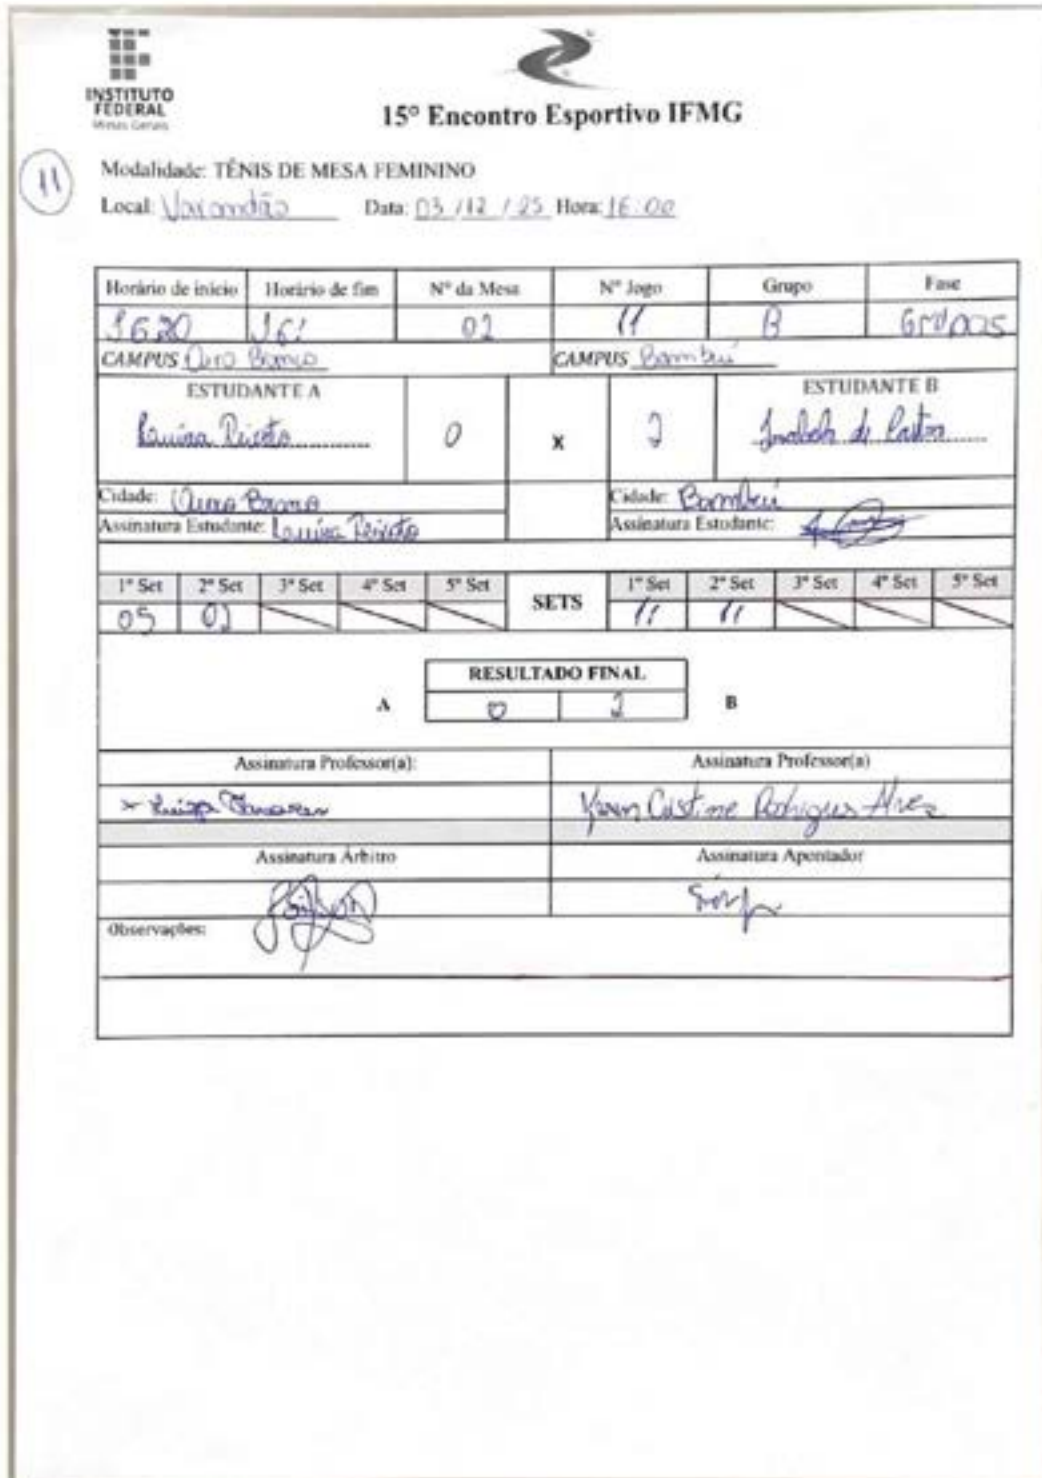 INSTITUTO
FEDERAL
Minas Gerais
15º Encontro Esportivo IFMG
11
Modalidade: TÊNIS DE MESA FEMININO
Local: Varandão Data: 03 / 12 / 25 Hora: 16:00
Horário de início Horário de fim Nº da Mesa Nº Jogo Grupo Fase
1620 16: 02 11 B Grupos
CAMPUS Ouro Branco CAMPUS Bambuí
ESTUDANTE A ESTUDANTE B
Peixoto 0 x 2 de Castro
Cidade: Ouro Branco Cidade: Bambuí
Assinatura Estudante: Peixoto Assinatura Estudante:
1º Set 2º Set 3º Set 4º Set 5º Set SETS 1º Set 2º Set 3º Set 4º Set 5º Set
05 02 11 11
RESULTADO FINAL
A 0 2 B
Assinatura Professor(a): Assinatura Professor(a)
x Luiza Tavares Karen Cristine Rodrigues Alves
Assinatura Árbitro Assinatura Apontador
Observações: